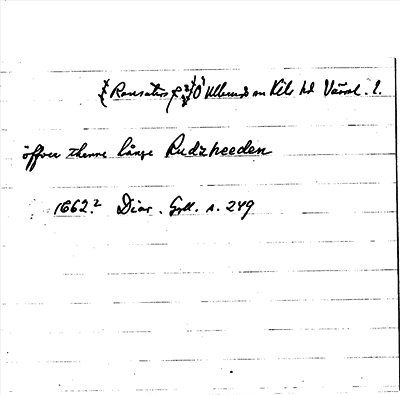 Ransäters Ö Ullerud sn Kils hd Värml. l.
öffver thenne långe Rudzheeden
1662.² Diar. Gyll. s. 249